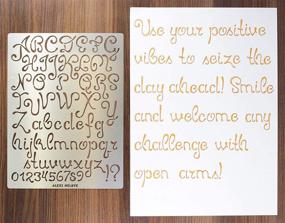 ABCDEFG
HIJKLM
NOPQRS
TUVWXYZ
abcdefg
hijklmnopqr
stuvwxyz
0123456789!?
Use your positive
vibes to seize the
day ahead! Smile
and welcome any
challenge with
open arms!